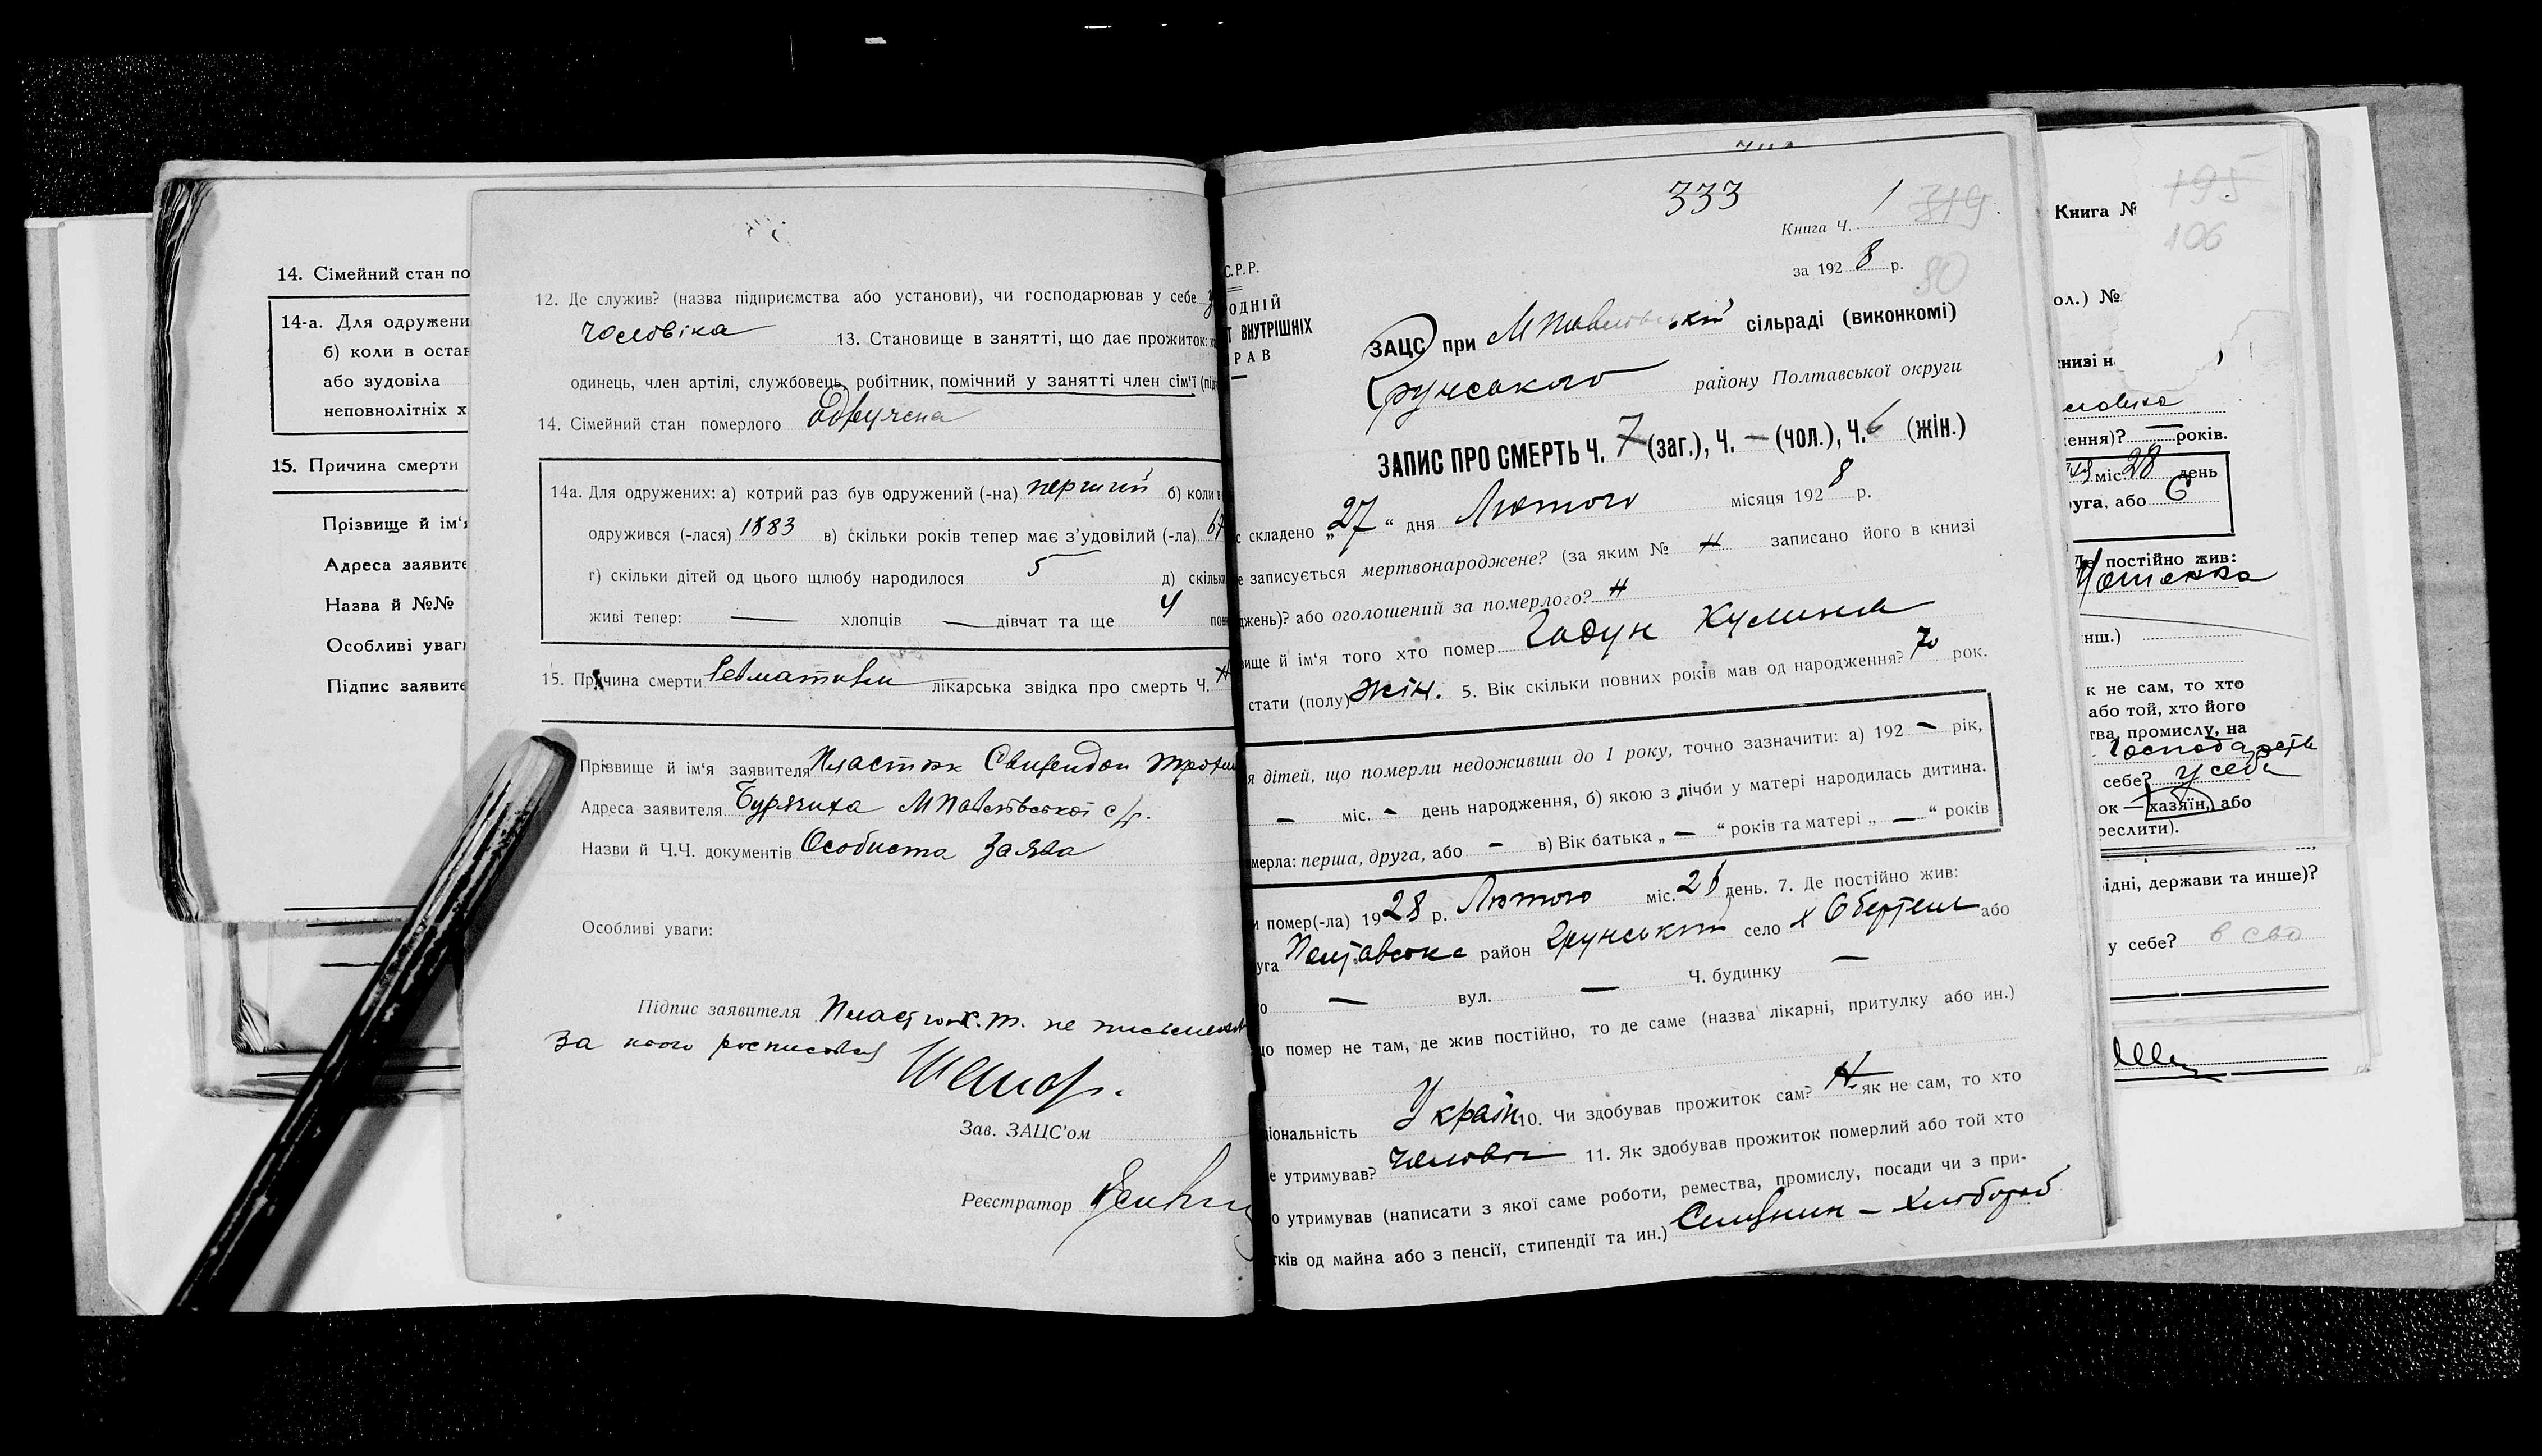 14. Сімейний стан по
14-а. Для одружени
б) коли в остан
або зудовіла
неповнолітніх х
15. Причина смерти
Прізвище й ім‘я
Адреса заявите
Назва й №№
Особливі уваги
Підпис заявите
12. Де служив? (назва підприємства або установи), чи господарював у себе у
чоловіка 13. Становище в занятті, що дає прожиток: х
одинець, член артілі, службовець, робітник, помічний у занятті член сім‘ї (під
14. Сімейний стан померлого одружена
14а. Для одружених: а) котрий раз був одружений (-на) перший б) коли в
одружився (-лася) 1883 в) скільки років тепер має з’удовілий (-ла) 67
г) скільки дітей од цього шлюбу народилося 5 д) скільки
живі тепер: — хлопців — дівчат та ще 4 пов
15. Причина смерти Ревматизм лікарська звідка про смерть Ч.
Прізвище й ім‘я заявителя Пластюк
Адреса заявителя Бурячиха МПавлівської с/р.
Назви й Ч.Ч. документів Особиста Заява
Особливі уваги:
Підпис заявителя Пластюк. т. не письменний
За його росписався
Зав. ЗАЦС’ом
Реєстратор
С.Р.Р.
ОДНІЙ
Т ВНУТРІШНІХ
РАВ
333
Книга Ч. 1 319
за 1928 р.
80
ЗАЦС при МПавлівській сільраді (виконкомі)
Грунського району Полтавської округи
ЗАПИС ПРО СМЕРТЬ Ч. 7 (заг.), Ч. — (чол.), Ч. 6 (жін.)
с складено „27“ дня Лютого місяця 1928 р.
е записується мертвонароджене? (за яким № Н записано його в книзі
джень)? або оголошений за померлого? Н
вище й ім‘я того хто помер Гадун Кулина
стати (полу) жін. 5. Вік скільки повних років мав од народження? 70 рок.
я дітей, що померли недоживши до 1 року, точно зазначити: а) 192 — рік,
— міс. — день народження, б) якою з лічби у матері народилась дитина.
мерла: перша, друга, або — в) Вік батька „ — “ років та матері „ — “ років
и помер(-ла) 1928 р. Лютого міс. день. 7. Де постійно жив:
уга Полтавська район Грунський село х або
о — вул. — Ч. будинку —
що помер не там, де жив постійно, то де саме (назва лікарні, притулку або ин.)
ціональність Україн 10. Чи здобував прожиток сам? Н як не сам, то хто
е утримував? чоловік 11. Як здобував прожиток померлий або той хто
о утримував (написати з якої саме роботи, ремества, промислу, посади чи з при-
тків од майна або з пенсії, стипендії та ин.) Селянин — хлібороб
Книга №
195
106
ол.) №
книзі н
ення)? — років.
міс. 28 день
руга, або 6
Де постійно жив:
нш.)
к не сам, то хто
або той, хто його
тва, промислу, на
себе? у себе
ок — хазяїн, або
реслити).
ідні, держави та инше)?
у себе? в сво